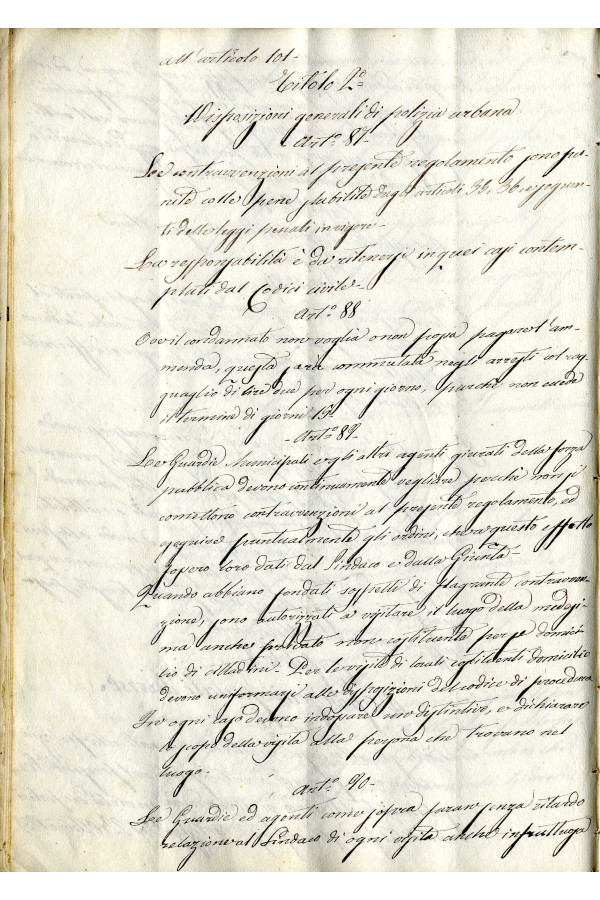 all'articolo 101-
Titolo 2º
Disposizioni generali di polizia urbana
-Artº 87-
Le contravvenzioni al presente regolamento sono pu-
nite colle pene stabilite dagli articoli 35, 36 e seguen-
ti delle leggi penali in vigore-
La responsabilità è da ritenersi in quei casi contem-
plati dal Codici civile-
Artº 88
Ove il condannato non voglia o non possa pagare l'am-
menda, questa sarà commutata negli arresti col rag-
guaglio di lire due per ogni giorno, purchè non ecceda
il termine di giorni 15-
-Artº 89-
Le Guardie Municipali e gli altri agenti giurati della forza
pubblica devono continuamente vegliare perchè non si
comettono contravvenzioni al presente regolamento, ed
eseguire puntualmente gli ordini, che a questo effetto
fossero loro dati dal Sindaco e dalla Giunta-
Quando abbiano fondati sospetti di flagrante contravven-
zione, sono autorizzati a visitare il luogo della medesi-
ma anche privato non costituente per se domici-
lio di cittadini- Per le visite di locali costituenti domicilio
devono uniformarsi alle disposizioni del codice di procedura
In ogni caso devono indossare un distintivo, e dichiarare
lo scopo della visita alla persona che trovano nel
luogo-
Artº 90-
Le Guardie ed agenti come sovra faran senza ritardo
relazione al Sindaco di ogni visita anche infruttuosa